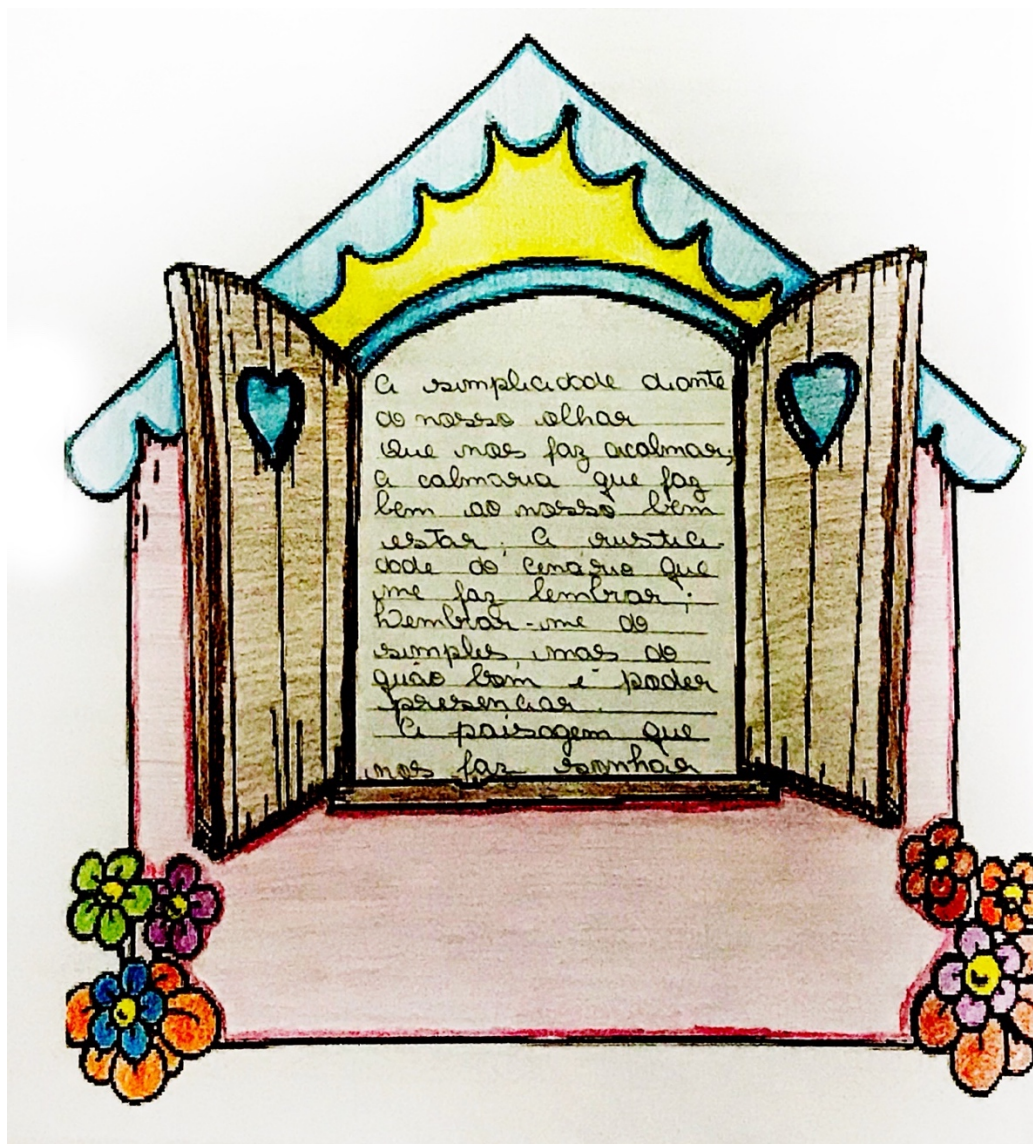 A simplicidade diante
do nosso olhar
Que nos faz acalmar,
A calmaria que faz
bem ao nosso bem
estar. A rustici-
dade do cenário que
me faz lembrar;
Lembrar-me do
simples, mas do
quão bom é poder
presenciar.
A paisagem que
nos faz sonhar